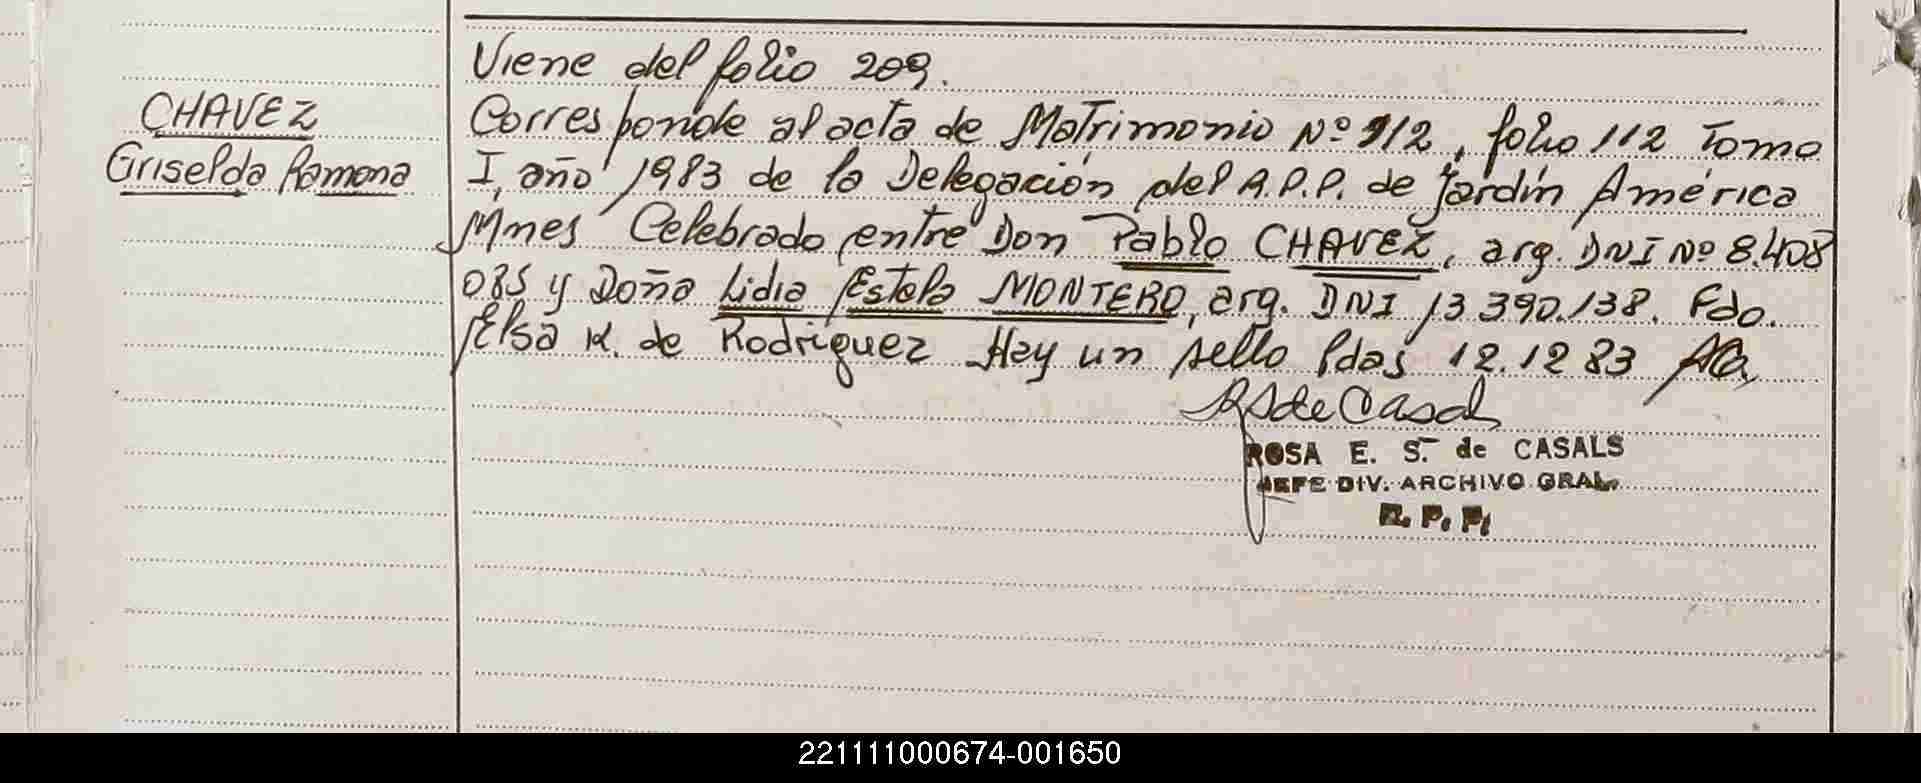 Viene del folio 209.
CHAVEZ
Griselda Ramona
Corresponde al acta de Matrimonio Nº 112, folio 112 Tomo
I, año 1983 de la Delegación del R.P.P. de Jardín América
Mnes Celebrado entre Don Pablo CHAVEZ, arg. DNI Nº 8.408
085 y Doña Lidia Estela MONTERO, arg. DNI 13.390.138. Fdo.
Elsa K. de Rodriguez Hay un sello Pdas 12.12.83
RSdeCasals
ROSA E. S. de CASALS
JEFE DIV. ARCHIVO GRAL.
R. P. P.
221111000674-001650